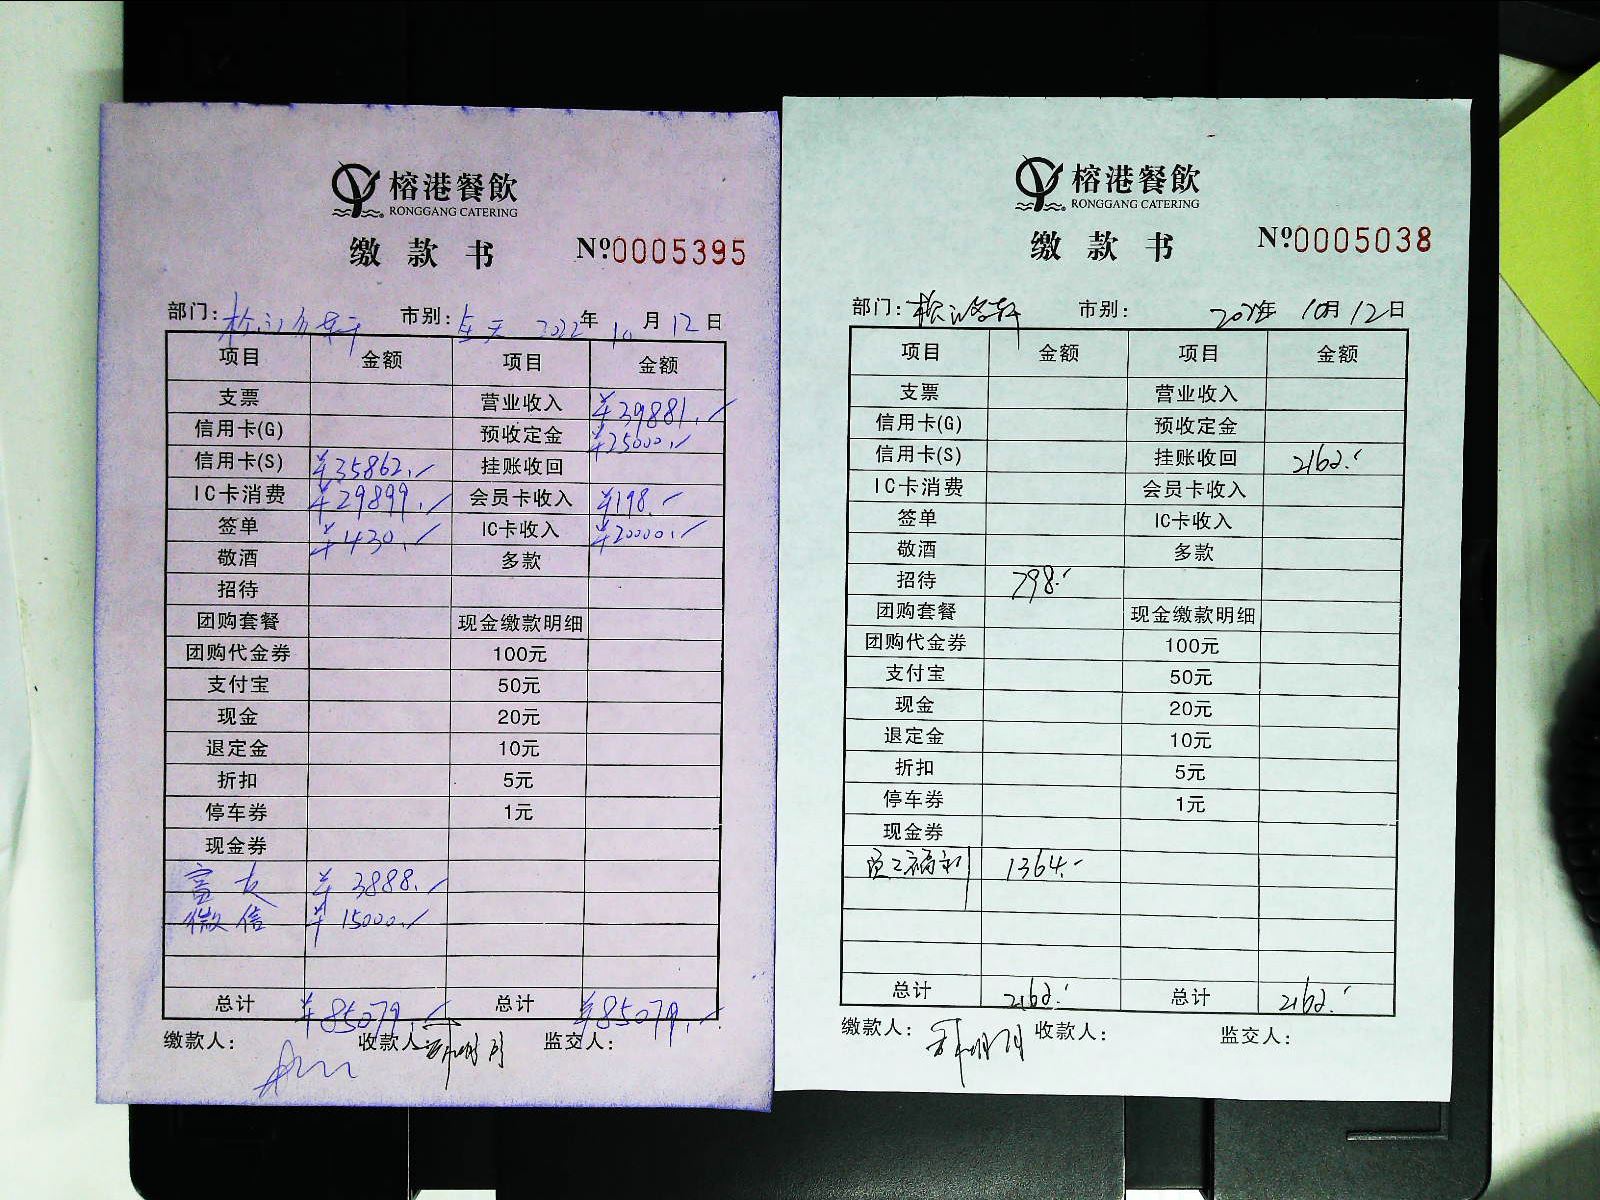 榕港餐飲
RONGGANG CATERING
缴款书 Nº0005395
部门: 市别: 全天 2022年 10月12日
项目 金额 项目 金额
支票 营业收入 ¥39881.
信用卡(G) 预收定金 ¥25000.
信用卡(S) ¥35862. 挂账收回
IC卡消费 ¥29899. 会员卡收入 ¥198.
签单 ¥430. IC卡收入 ¥20000.
敬酒 多款
招待
团购套餐 现金缴款明细
团购代金券 100元
支付宝 50元
现金 20元
退定金 10元
折扣 5元
停车券 1元
现金券
富友 ¥3888.
微信 ¥15000.
总计 ¥85079. 总计 ¥85079.
缴款人: 收款人: 监交人:
榕港餐飲
RONGGANG CATERING
缴款书 Nº0005038
部门: 市别: 年 10月12日
项目 金额 项目 金额
支票 营业收入
信用卡(G) 预收定金
信用卡(S) 挂账收回 2162.
IC卡消费 会员卡收入
签单 IC卡收入
敬酒 多款
招待 798.
团购套餐 现金缴款明细
团购代金券 100元
支付宝 50元
现金 20元
退定金 10元
折扣 5元
停车券 1元
现金券
员工福利 1364.
总计 2162. 总计 2162.
缴款人: 收款人: 监交人: